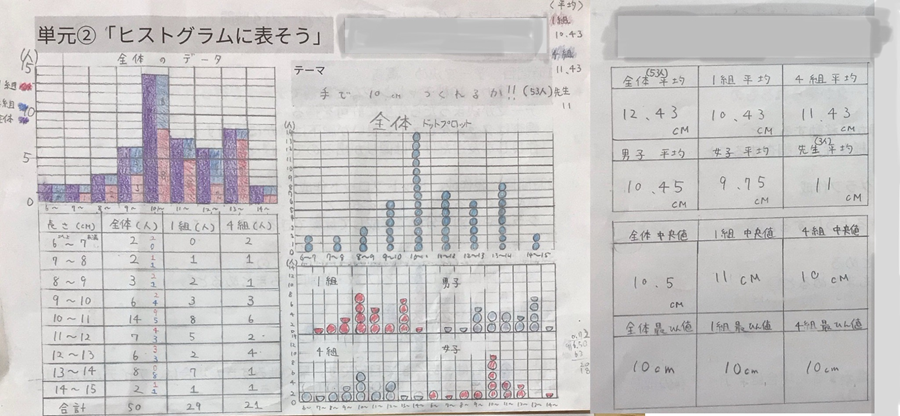 単元②「ヒストグラムに表そう」
全体のデータ
(人)
15
10
5
0
6~ 7~ 8~ 9~ 10~ 11~ 12~ 13~ 14~
長さ(cm) 全体(人) 1組(人) 4組(人)
6以上~7未満 2 0 2
7~8 2 1 1
8~9 3 2 1
9~10 6 3 3
10~11 14 8 6
11~12 7 5 2
12~13 6 2 4
13~14 8 7 1
14~15 2 1 1
合計 50 29 21
(平均)
1組
10.43
4組
11.43
先生
11
テーマ
手で 10cm つくれるか!! (53人)
全体 ドットプロット
1組
男子
4組
女子
全体(53人)平均 1組 平均 4組 平均
12.43 CM 10.43 CM 11.43 CM
男子 平均 女子 平均 先生(3人)平均
10.45 CM 9.75 CM 11 CM
全体 中央値 1組 中央値 4組 中央値
10.5 CM 11 CM 10 CM
全体 最ひん値 1組 最ひん値 4組 最ひん値
10cm 10cm 10cm